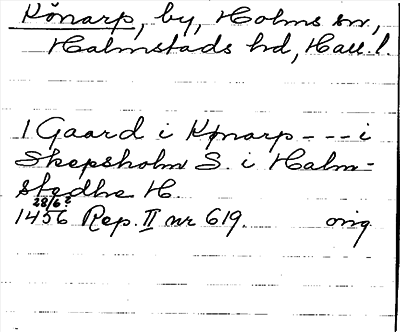 Könarp, by, Holms sn,
Halmstads hd, Hall l.
1 Gaard i Kønarp - - - i
Skepsholm S. i Halm-
stedhe H.
28/6?
1456 Rep. II nr 619. orig